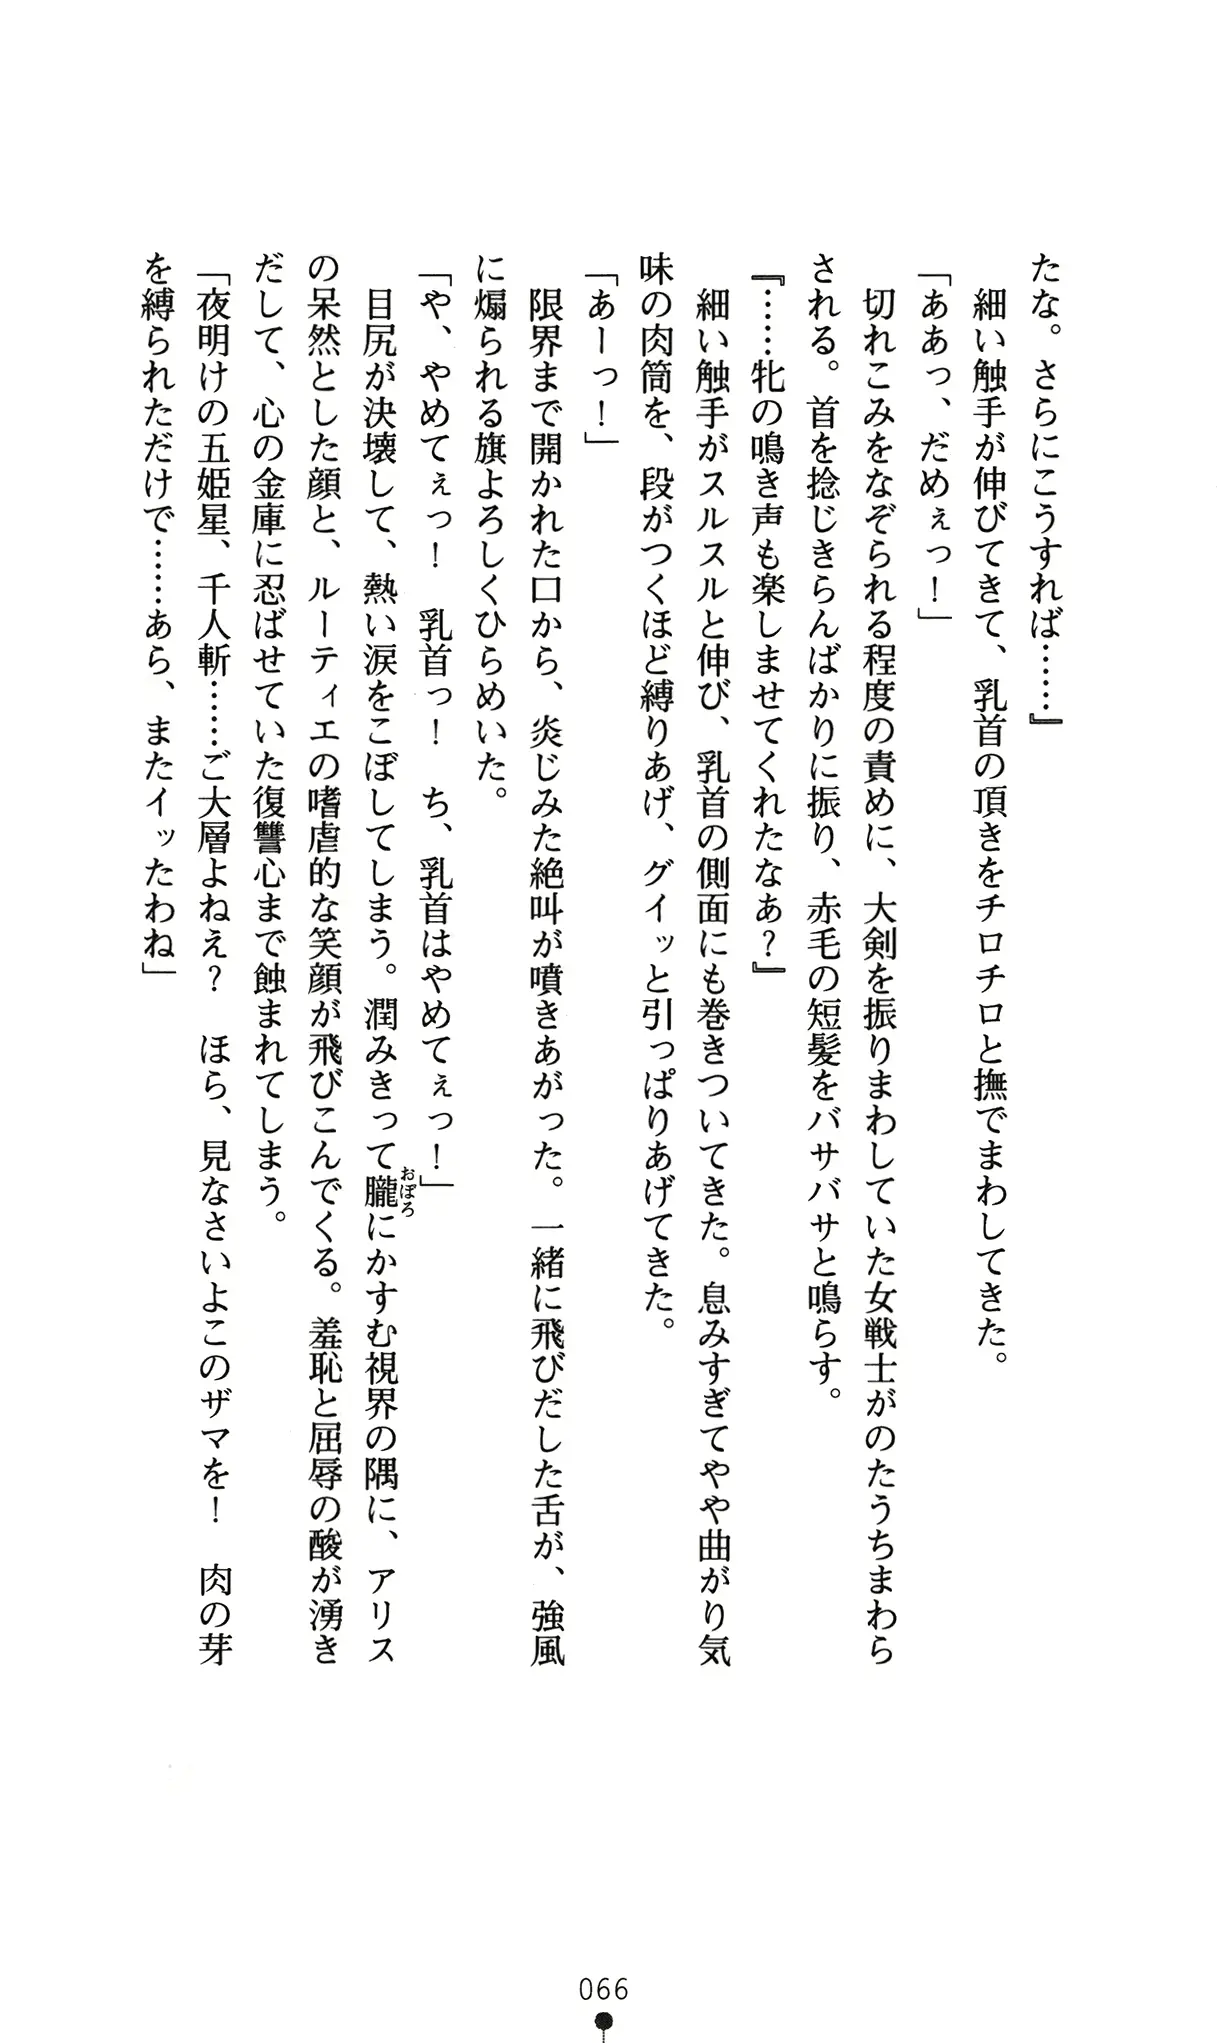 たな。さらにこうすれば……』
細い触手が伸びてきて、乳首の頂きをチロチロと撫でまわしてきた。
「ああっ、だめぇっ！」
切れこみをなぞられる程度の責めに、大剣を振りまわしていた女戦士がのたうちまわら
される。首を捻じきらんばかりに振り、赤毛の短髪をバサバサと鳴らす。
『……牝の鳴き声も楽しませてくれたなぁ？』
細い触手がスルスルと伸び、乳首の側面にも巻きついてきた。息みすぎてやや曲がり気
味の肉筒を、段がつくほど縛りあげ、グイッと引っぱりあげてきた。
「あーっ！」
限界まで開かれた口から、炎じみた絶叫が噴きあがった。一緒に飛びだした舌が、強風
に煽られる旗よろしくひらめいた。
「や、やめてぇっ！　乳首っ！　ち、乳首はやめてぇっ！」
目尻が決壊して、熱い涙をこぼしてしまう。潤みきって朧おぼろにかすむ視界の隅に、アリス
の呆然とした顔と、ルーティエの嗜虐的な笑顔が飛びこんでくる。羞恥と屈辱の酸が湧き
だして、心の金庫に忍ばせていた復讐心まで蝕まれてしまう。
「夜明けの五姫星、千人斬……ご大層よねえ？　ほら、見なさいよこのザマを！　肉の芽
を縛られただけで……あら、またイッたわね」
066